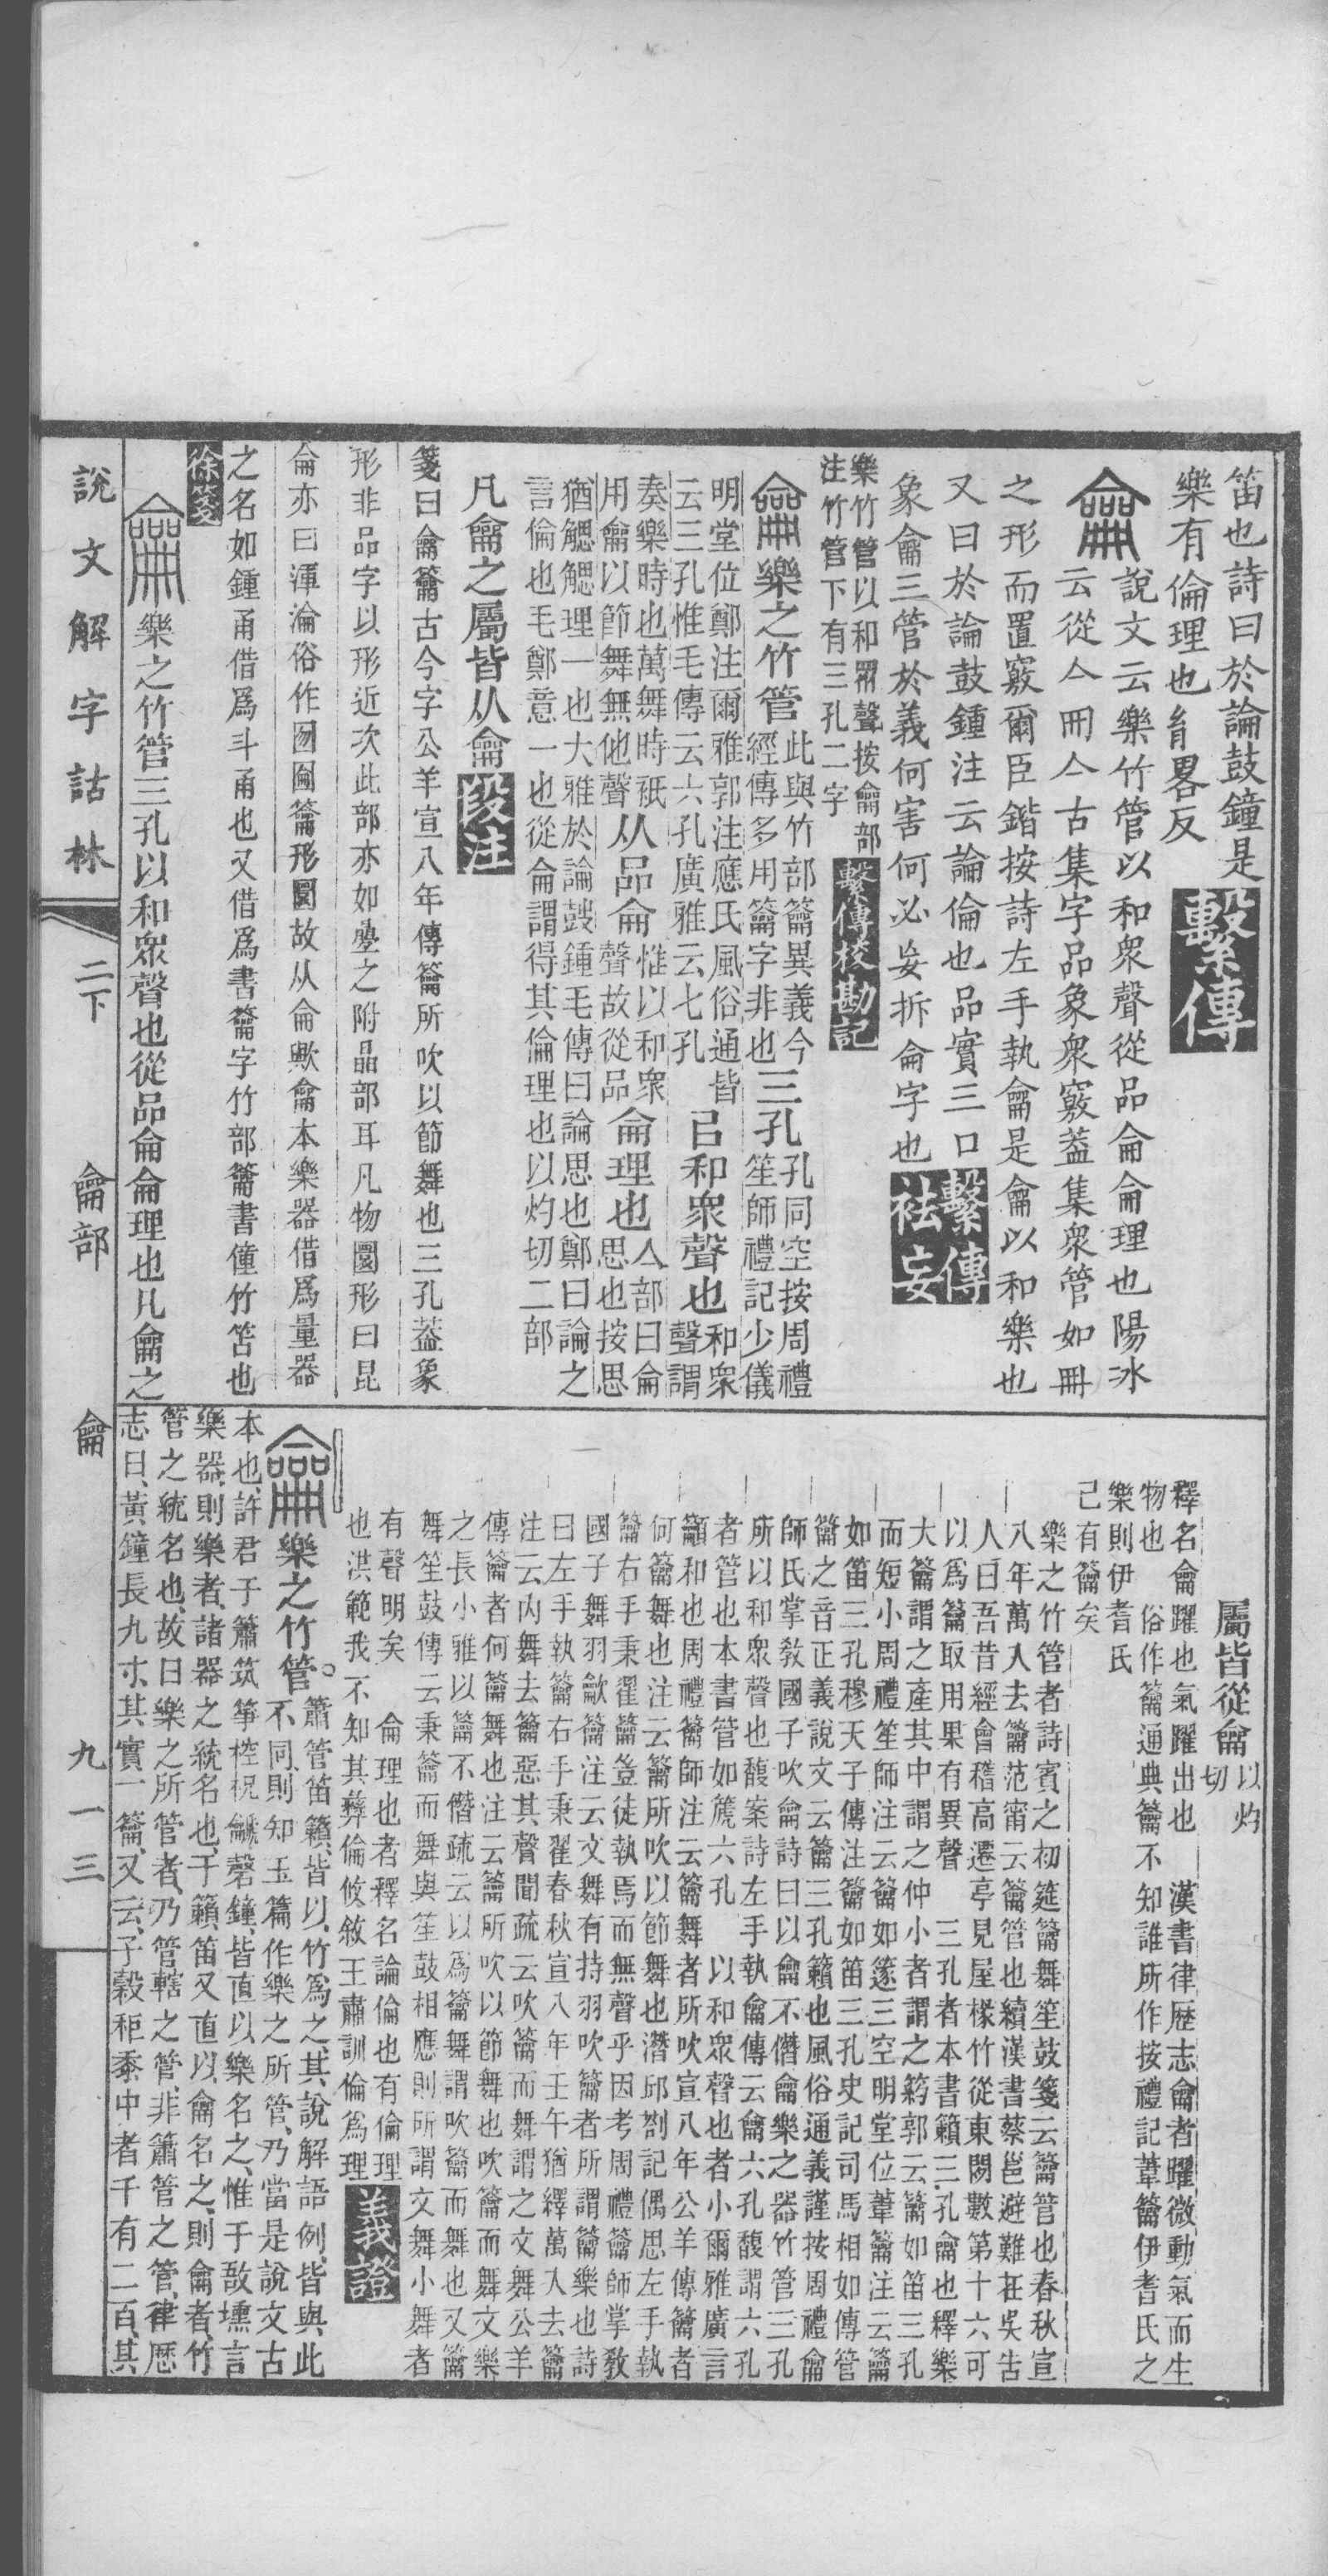 笛也詩曰於論鼓鐘是
樂有倫理也㣧畧反
繫傳
龠
說文云樂竹管以和眾聲從品侖侖理也陽冰
云從亼冊亼古集字品象眾竅蓋集眾管如冊
之形而置竅爾臣鍇按詩左手執龠是龠以和樂也
又曰於論鼓鍾注云論倫也品實三口
象龠三管於義何害何必妄拆侖字也
繫傳
祛妄
樂竹管以和眾聲按龠部
注竹管下有三孔二字
繫傳校勘記
龠樂之竹管
此與竹部籥異義今
經傳多用籥字非也
三孔
孔同空按周禮
笙師禮記少儀
明堂位鄭注爾雅郭注應氏風俗通皆
云三孔惟毛傳云六孔廣雅云七孔
㠯和眾聲也
和眾
聲謂
奏樂時也萬舞時衹
用龠以節舞無他聲
从品侖
惟以和眾
聲故從品
侖理也
亼部曰侖
思也按思
猶䚡䚡理一也大雅於論鼓鍾毛傳曰論思也鄭曰論之
言倫也毛鄭意一也從侖謂得其倫理也以灼切二部
凡龠之屬皆从龠
段注
箋曰龠籥古今字公羊宣八年傳籥所吹以節舞也三孔葢象
形非品字以形近次此部亦如壘之附晶部耳凡物圜形曰昆
侖亦曰渾淪俗作囫圇籥形圜故从侖歟龠本樂器借爲量器
之名如鍾甬借爲斗甬也又借爲書籥字竹部籥書僮竹笘也
徐箋
龠
樂之竹管三孔以和眾聲也從品侖侖理也凡龠之
屬皆從龠
以灼
切
釋名龠躍也氣躍出也 漢書律歴志龠者躍微動氣而生
物也 俗作籥通典籥不知誰所作按禮記葦籥伊耆氏之
樂則伊耆氏
已有籥矣
樂之竹管者詩賓之初筵籥舞笙鼓箋云籥管也春秋宣
八年萬入去籥范甯云籥管也續漢書蔡邕避難在吳告
人曰吾昔經會稽高遷亭見屋椽竹從東閒數第十六可
以爲籥取用果有異聲 三孔者本書籟三孔龠也釋樂
大籥謂之產其中謂之仲小者謂之箹郭云籥如笛三孔
而短小周禮笙師注云籥如篴三空明堂位葦籥注云籥
如笛三孔穆天子傳注籥如笛三孔史記司馬相如傳管
籥之音正義說文云籥三孔籟也風俗通義謹按周禮龠
師氏掌敎國子吹龠詩曰以龠不僭龠樂之器竹管三孔
所以和眾聲也馥案詩左手執龠傳云龠六孔馥謂六孔
者管也本書管如篪六孔 以和眾聲也者小爾雅廣言
籲和也周禮籥師注云籥舞者所吹宣八年公羊傳籥者
何籥舞也注云籥所吹以節舞也潛邱劄記偶思左手執
籥右手秉翟籥豈徒執焉而無聲乎因考周禮籥師掌敎
國子舞羽龡籥注云文舞有持羽吹籥者所謂籥樂也詩
曰左手執籥右手秉翟春秋宣八年壬午猶繹萬入去籥
注云內舞去籥惡其聲聞疏云吹籥而舞謂之文舞公羊
傳籥者何籥舞也注云籥所吹以節舞也吹籥而舞文樂
之長小雅以籥不僭疏云以爲籥舞謂吹籥而舞也又籥
舞笙鼓傳云秉籥而舞與笙鼓相應則所謂文舞小舞者
有聲明矣 侖理也者釋名論倫也有倫理
也洪範我不知其彝倫攸敘王肅訓倫爲理
義證
龠樂之竹管。
簫管笛籟、皆以竹爲之、其說解語例、皆與此
不同、則知玉篇作樂之所管、乃當是說文古
本也、許君于簫筑箏椌柷龢磬鐘、皆直以樂名之、惟于敔壎言
樂器、則樂者、諸器之統名也、于籟、笛又直以龠名之、則龠者、竹
管之統名也、故曰樂之所管者、乃管轄之管、非簫管之管、律歴
志曰、黃鐘長九寸、其實一籥、又云、子穀秬黍中者千有二百、其
說文解字詁林
二下
龠部
龠
九一三